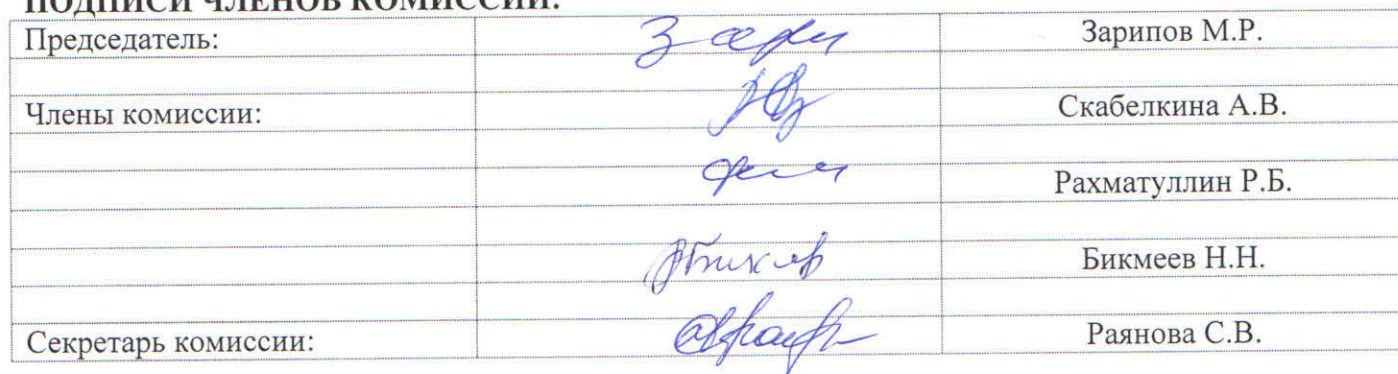 ПОДПИСИ ЧЛЕНОВ КОМИССИИ:
Председатель: Зарипов М.Р.
Члены комиссии: Скабелкина А.В.
Рахматуллин Р.Б.
Бикмеев Н.Н.
Секретарь комиссии: Раянова С.В.